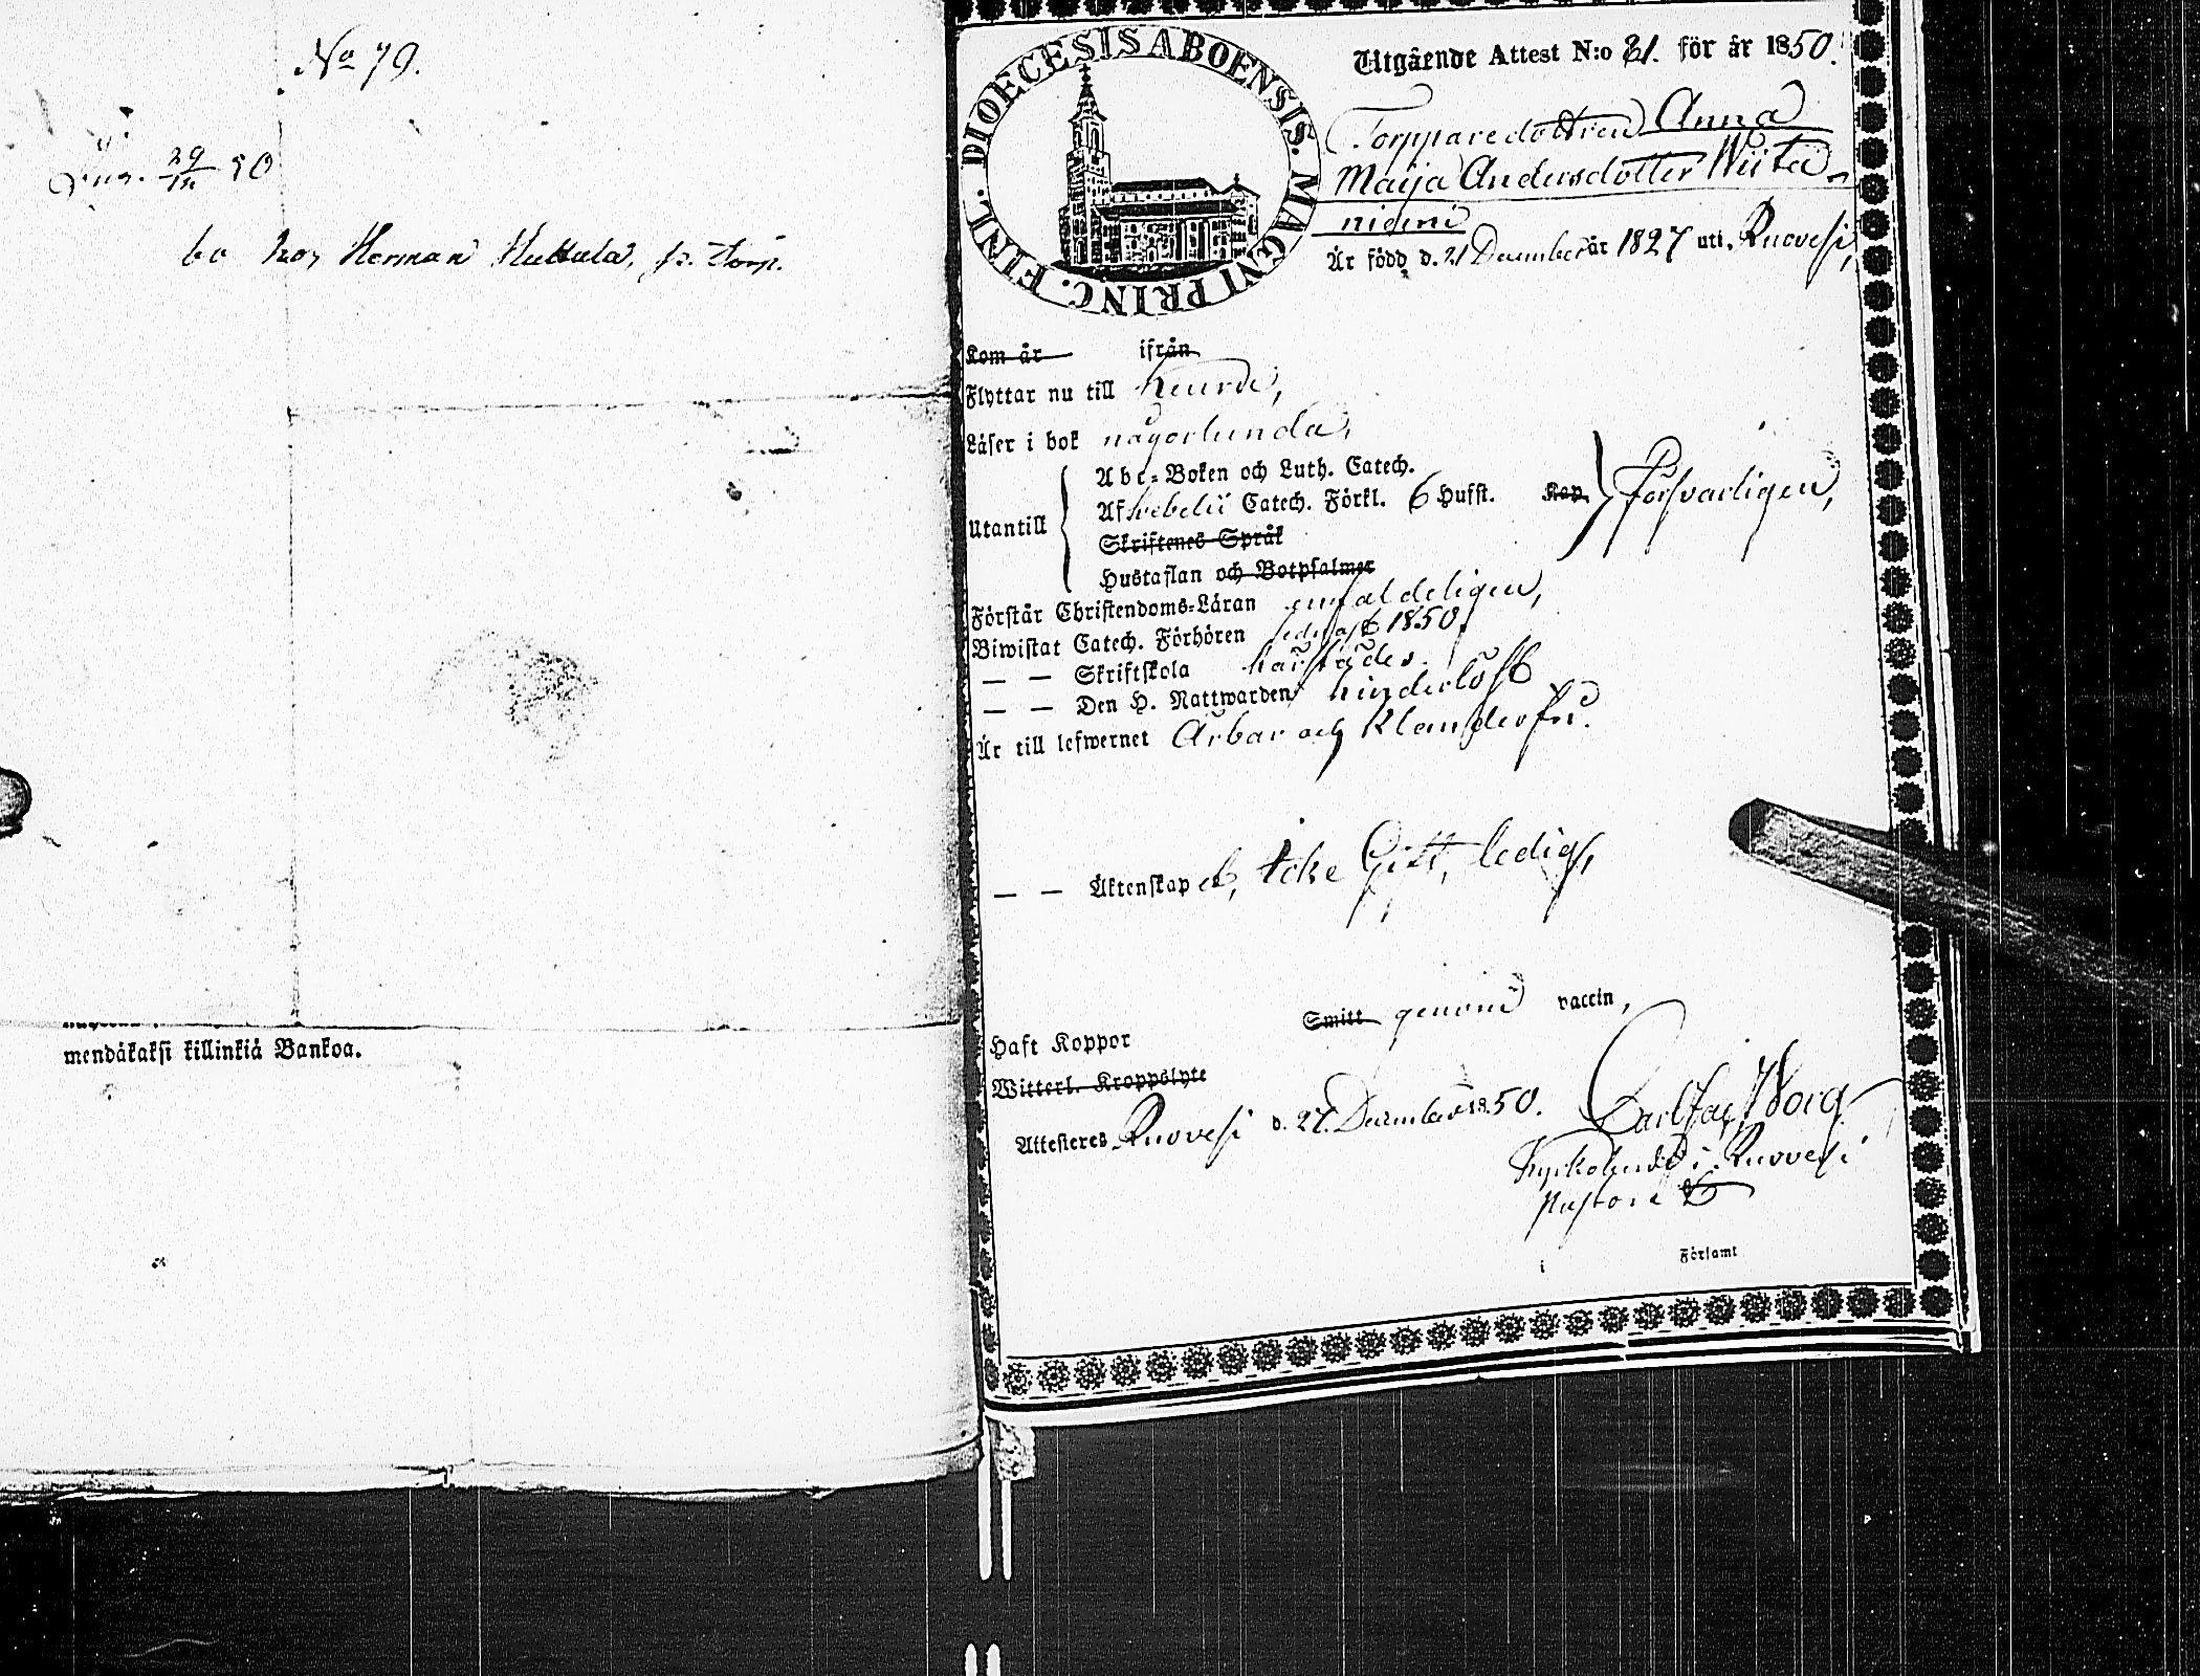 No 79.
29 50
bo hos Herman Huttula, s. Torp.
mendäkaksi killinkiä Bankoa.
DIOECESIS ABOENSIS. MAGNI PRINC. FINL.
Utgående Attest N:o 81. för år 1850.
Torpparedottren Anna
Maija Andersdotter Wiita-
niemi
Är född d. 21 December år 1827 uti Ruovesi,
Kom år ifrån
Flyttar nu till Keuru,
Läser i bok någorlunda,
Abc-Boken och Luth. Catech.
Utantill Af Svebelii Catech. Förkl. 6 Hufst. Kap. Försvarligen,
Skriftenes Språk
Hustaflan och Botpsalmer
Förstår Christendoms-Läran enfaldeligen,
Biwistat Catech. Förhören sednast 1850.
— — Skriftskola härstädes.
— — Den H. Nattwarden hinderlöst
Är till lefwernet Ärbar och Klanderfri.
— — Äktenskap et, Icke Gift, ledig,
Haft Koppor Smitt genom vaccin,
Witterl. Kroppslyte
Attesteres Ruovesi d. 27. December 1850. Carl Borg
Kyrkoherde i Ruovesi
Pastorat
i Församl